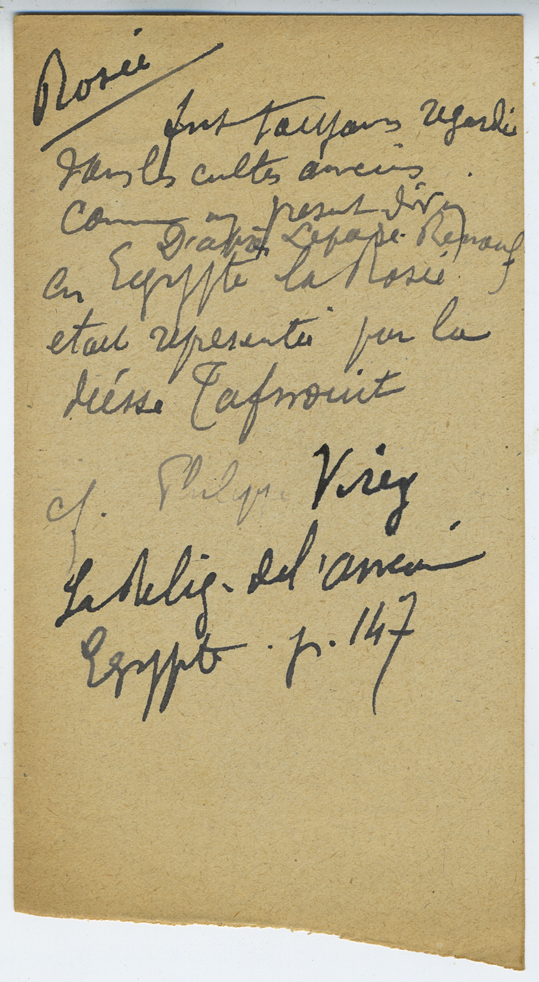 Rosée
fut toujours regardée
dans les cultes anciens
comme un présent divin
D'après Lepage-Renouf
en Egypte la Rosée
etait representée par la
déésse Tafnouit
cf. Philippe Virey
La Relig. de l'ancienne
Egypte. p. 147